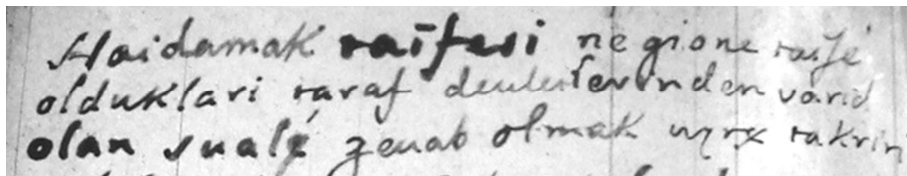 Haidamak taïfesi ne gione taifé
olduklari taraf deuletlerinden varid
olan sualé gevab olmak uzre takrir